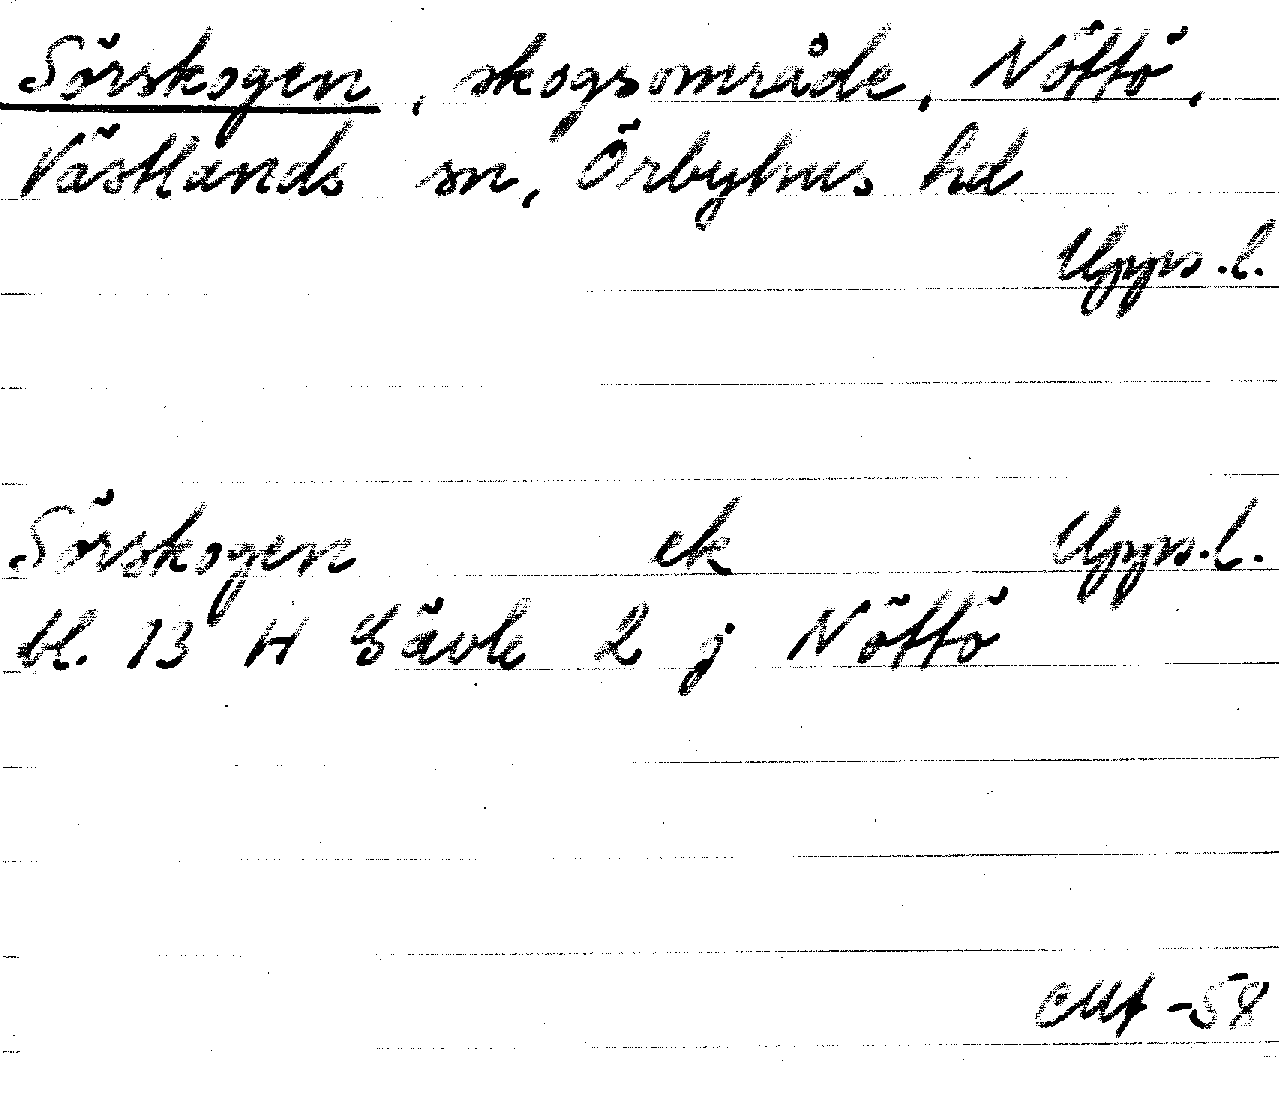 Sörskogen, skogsområde, Nöttö,
Västlands sn, Örbyhus hd
Upps.l.
Sörskogen ek Upps.l.
bl. 13 H Gävle 2 j Nöttö
-58